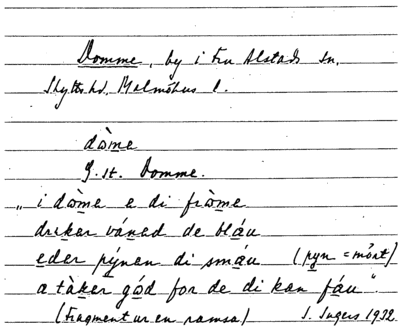 Domme, by i Fru Alstads sn,
Skytts hd, Malmöhus l.
dòme
G. st. Domme.
„ i dòme e di fròme
driker váned de bláu
eder pýnen di smáu (pyn = mört)
a tàker gód for de di kan fáu".
(Fragment ur en ramsa) I. Ingers 1932.